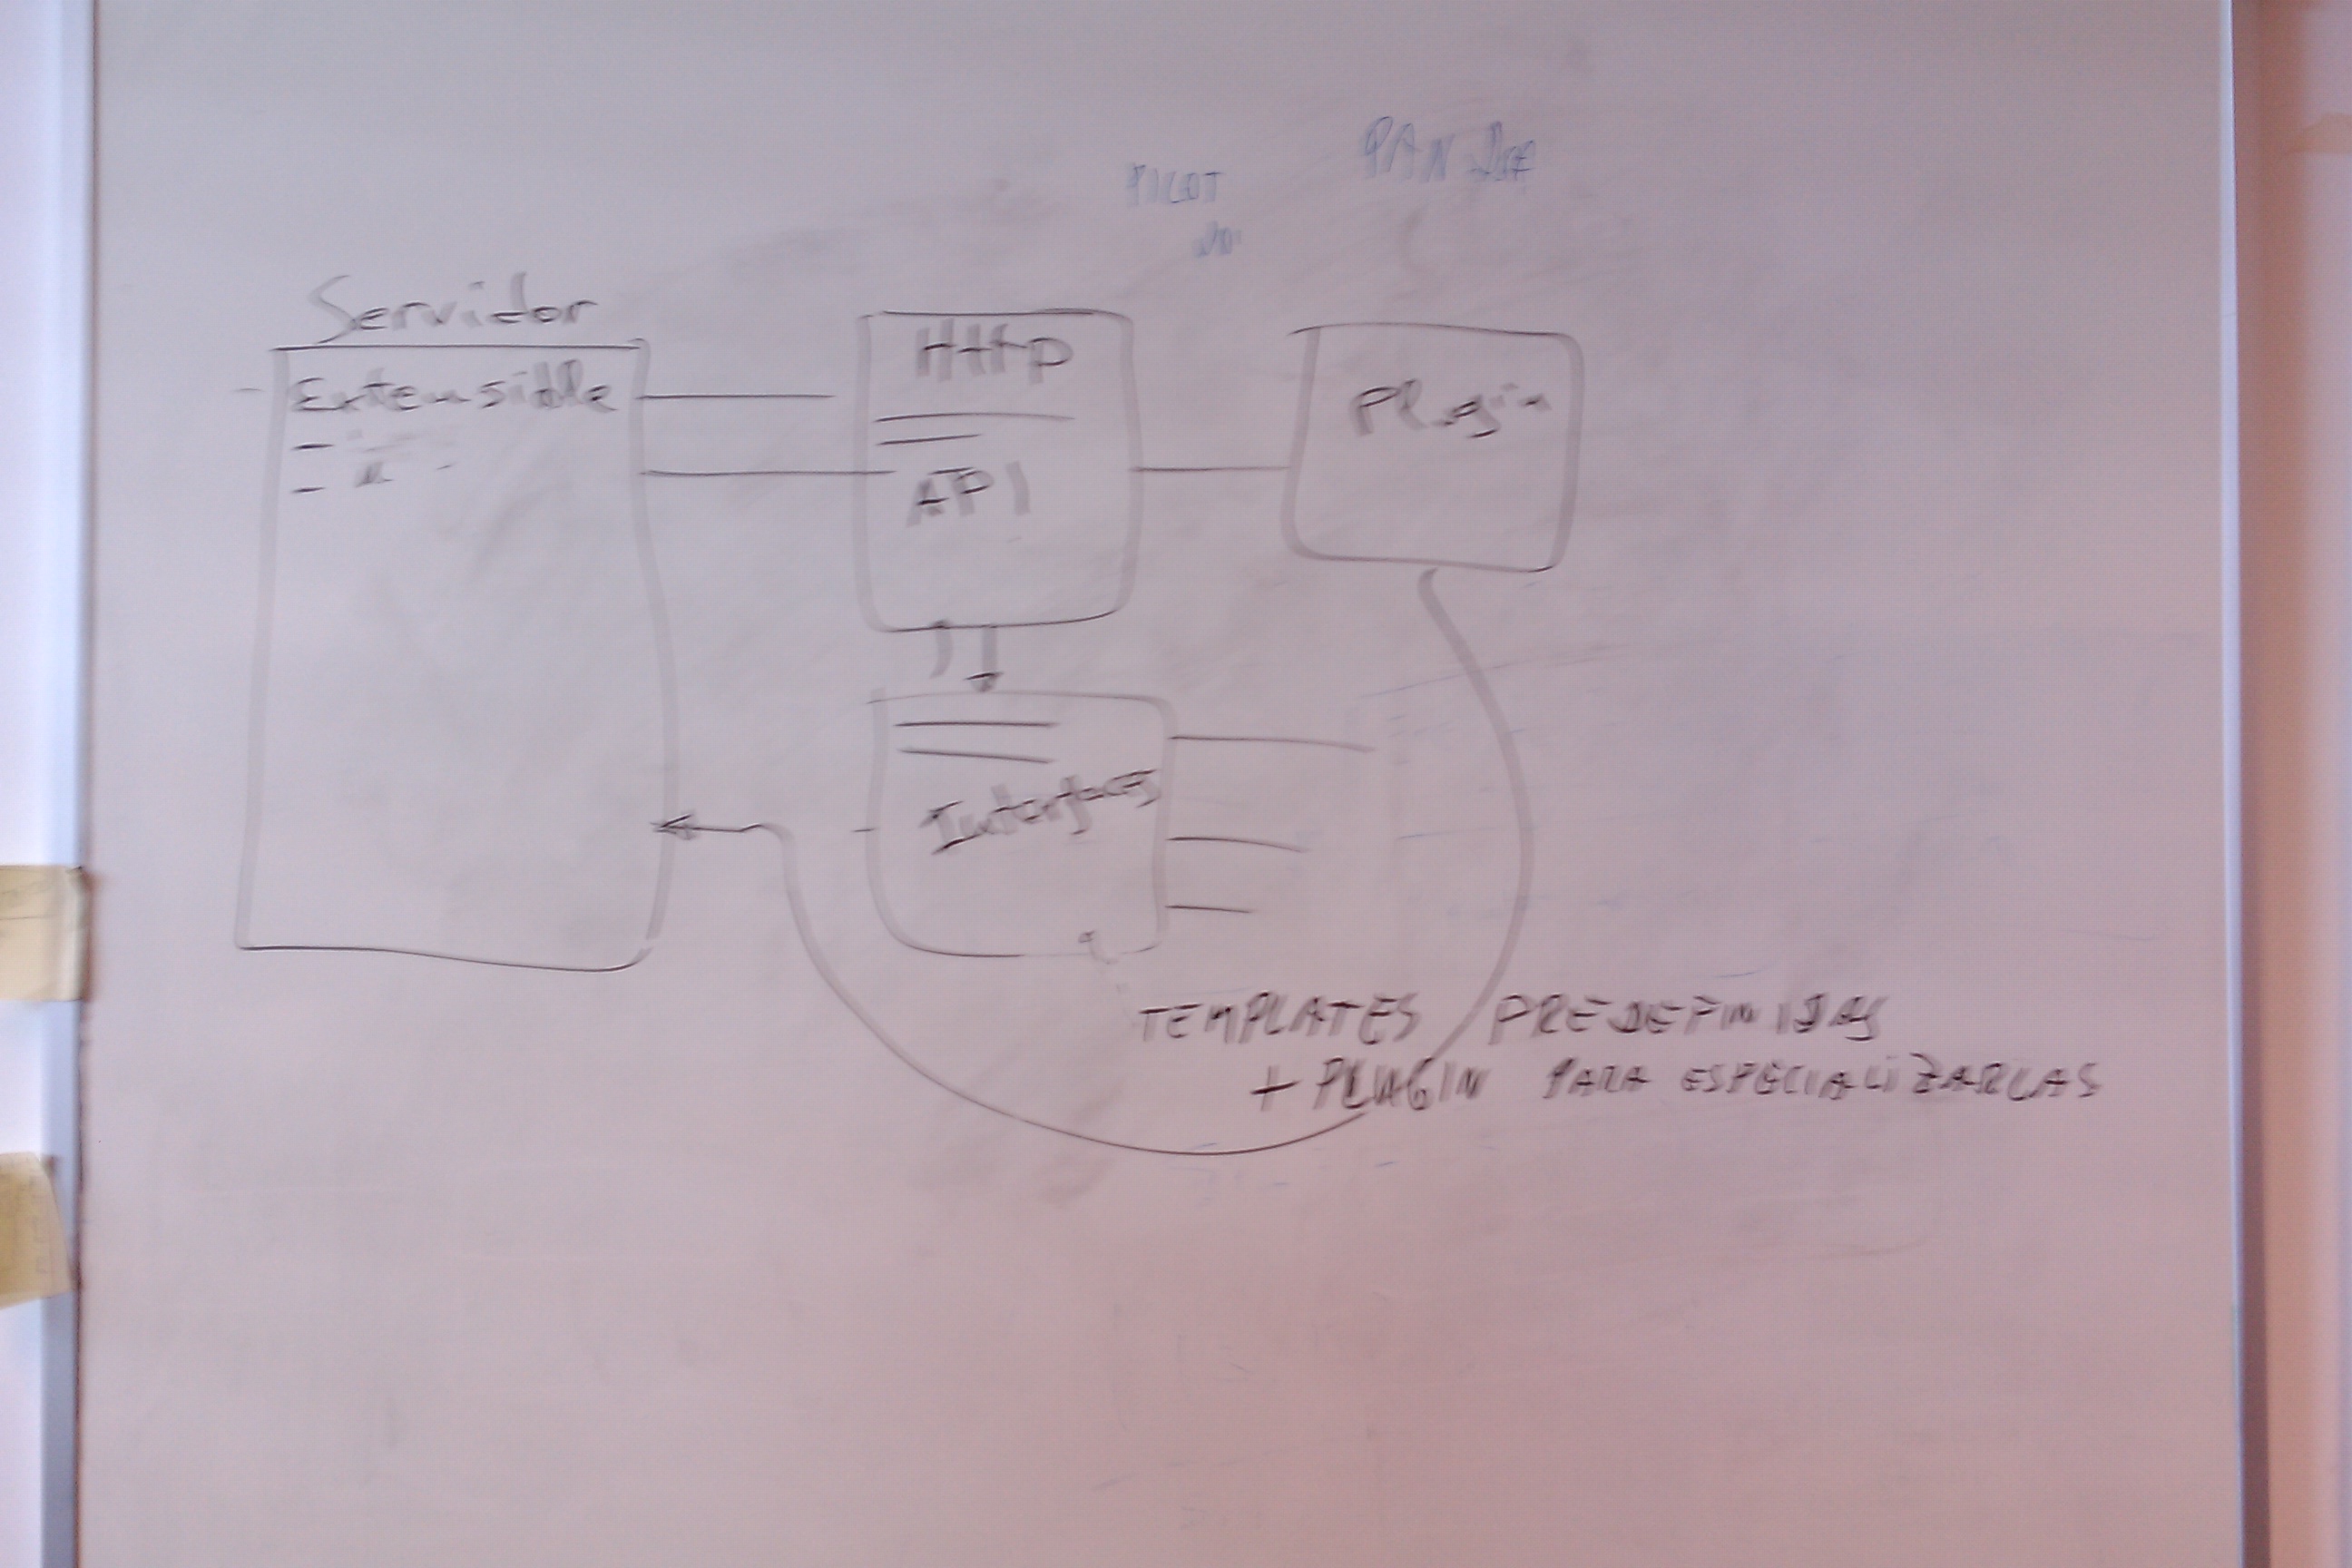 PILOT
Servidor
Extensible
Http
API
Plugin
Interfaces
TEMPLATES PREDEFINIDAS
+ PLUGIN PARA ESPECIALIZARLAS